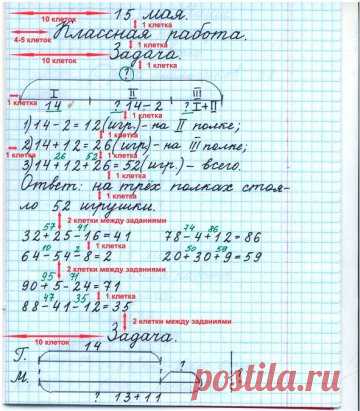 10 клеток 15 мая.
1 клетка
4-5 клеток Классная работа.
1 клетка
10 клеток Задача.
? 1 клетка
I II III
1 клетка 14 ? 14-2 ? I+II
1 клетка
1) 14-2=12(игр.)-на II полке;
1 клетка
2) 14+12=26(игр.)-на III полке;
26 52 1 клетка
3) 14+12+26=52(игр.)- всего.
1 клетка
Ответ: на трёх полках стоя-
ло 52 игрушки.
2 клетки между заданиями
57 41 74 86
32+25-16=41 78-4+12=86
1 клетка
10 2 50 59
64-54-8=2 20+30+9=59
2 клетки между заданиями
95 71
90+5-24=71
47 35 1 клетка
88-41-12=35
2 клетки между заданиями
10 клеток Задача.
Г. 14
М. ?
? 13+11